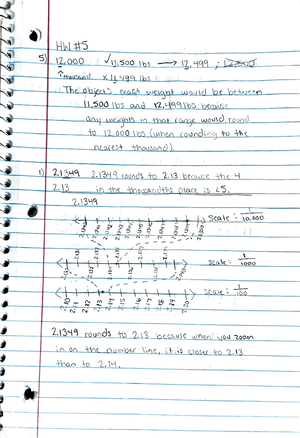 HW #5
5) 12,000 ✓11,500 lbs → 12,499 ;
thousand x 11,499 lbs
The object's exact weight would be between
11,500 lbs and 12,499 lbs because
any weights in that range would round
to 12,000 lbs (when rounding to the
nearest thousand).
1) 2.1349 2.1349 rounds to 2.13 because the 4
2.13 in the thousandths place is <5.
2.1349
scale: 1/10,000
scale: 1/1000
scale: 1/100
2.10 2.11 2.12 2.13 2.14 2.15 2.16 2.17 2.18 2.19 2.20
2.1349 rounds to 2.13 because when you zoom
in on the number line, it is closer to 2.13
than to 2.14.